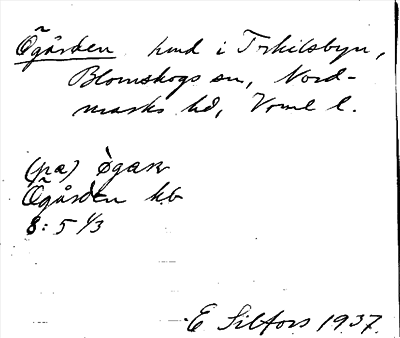 Ögården hmd i Trkilsbyn,
Blomskogs sn, Nord-
marks hd, Vrml l.
(pa) ògaɴ
Ögården kb
8:5 1/3
E Silfors 1937.